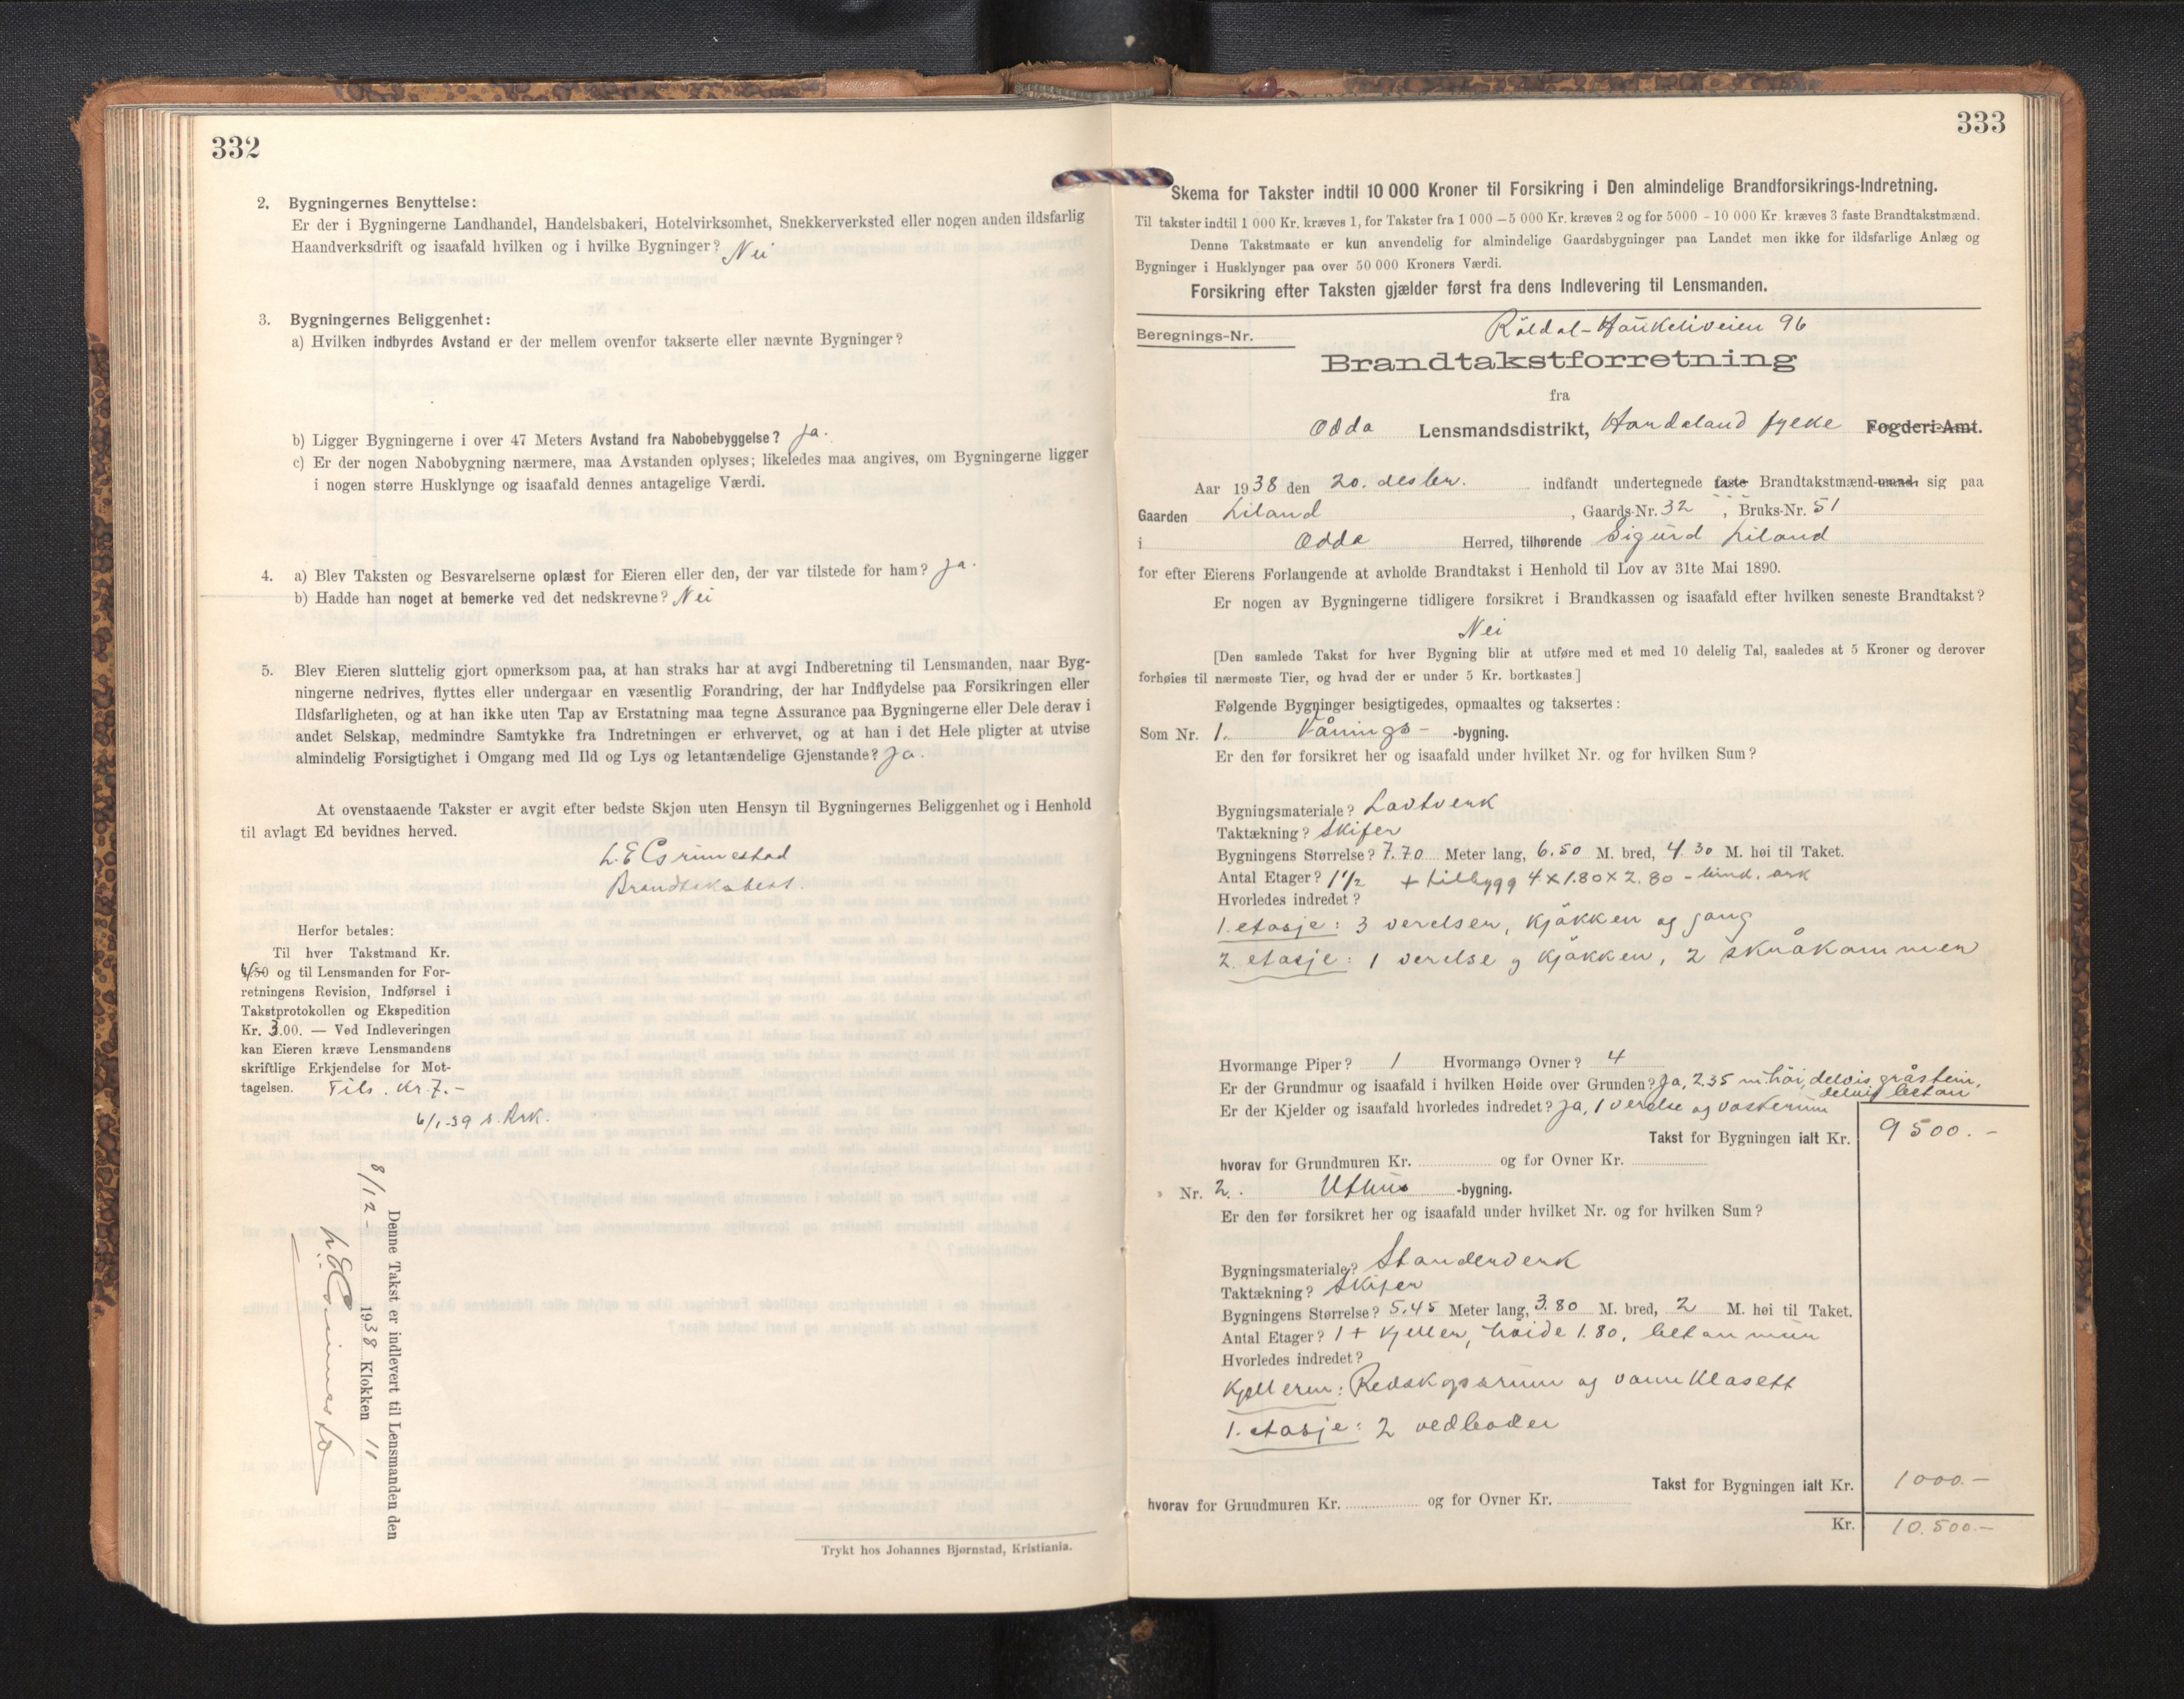 332
2. Bygningernes Benyttelse:
Er der i Bygningerne Landhandel, Handelsbakeri, Hotelvirksomhet, Snekkerverksted eller nogen anden ildsfarlig
Haandverksdrift og isaafald hvilken og i hvilke Bygninger? Nei
3. Bygningernes Beliggenhet:
a) Hvilken indbyrdes Avstand er der mellem ovenfor takserte eller nævnte Bygninger?
b) Ligger Bygningerne i over 47 Meters Avstand fra Nabobebyggelse? Ja.
c) Er der nogen Nabobygning nærmere, maa Avstanden oplyses; likeledes maa angives, om Bygningerne ligger
i nogen større Husklynge og isaafald dennes antagelige Værdi.
4. a) Blev Taksten og Besvarelserne oplæst for Eieren eller den, der var tilstede for ham? Ja.
b) Hadde han noget at bemerke ved det nedskrevne? Nei
5. Blev Eieren sluttelig gjort opmerksom paa, at han straks har at avgi Indberetning til Lensmanden, naar Byg-
ningerne nedrives, flyttes eller undergaar en væsentlig Forandring, der har Indflydelse paa Forsikringen eller
Ildsfarligheten, og at han ikke uten Tap av Erstatning maa tegne Assurance paa Bygningerne eller Dele derav i
andet Selskap, medmindre Samtykke fra Indretningen er erhvervet, og at han i det Hele pligter at utvise
almindelig Forsigtighet i Omgang med Ild og Lys og letantændelige Gjenstande? Ja.
At ovenstaaende Takster er avgit efter bedste Skjøn uten Hensyn til Bygningernes Beliggenhet og i Henhold
til avlagt Ed bevidnes herved.
L. E Grimestad
Brandtakstbest.
Herfor betales:
Til hver Takstmand Kr.
4/50 og til Lensmanden for For-
retningens Revision, Indførsel i
Takstprotokollen og Ekspedition
Kr. 3.00. — Ved Indleveringen
kan Eieren kræve Lensmandens
skriftlige Erkjendelse for Mot-
tagelsen. Tils. Kr. 7.-
6/1-39 s.
Denne Takst er indlevert til Lensmanden den
8/12- 1938 Klokken 11
L. E Grimestad
Trykt hos Johannes Bjørnstad, Kristiania.
333
Skema for Takster indtil 10 000 Kroner til Forsikring i Den almindelige Brandforsikrings-Indretning.
Til takster indtil 1 000 Kr. kræves 1, for Takster fra 1 000 – 5 000 Kr. kræves 2 og for 5000 – 10 000 Kr. kræves 3 faste Brandtakstmænd.
Denne Takstmaate er kun anvendelig for almindelige Gaardsbygninger paa Landet men ikke for ildsfarlige Anlæg og
Bygninger i Husklynger paa over 50 000 Kroners Værdi.
Forsikring efter Taksten gjælder først fra dens Indlevering til Lensmanden.
Beregnings-Nr. Röldal-Haukeliveien 96
Brandtakstforretning
fra
Odda Lensmandsdistrikt, Hordaland fylke Fogderi-Amt.
Aar 1938 den 20. desbr. indfandt undertegnede faste Brandtakstmænd-mand sig paa
Gaarden Liland, Gaards-Nr. 32, Bruks-Nr. 51
i Odda Herred, tilhørende Sigurd Liland
for efter Eierens Forlangende at avholde Brandtakst i Henhold til Lov av 31te Mai 1890.
Er nogen av Bygningerne tidligere forsikret i Brandkassen og isaafald efter hvilken seneste Brandtakst?
Nei
[Den samlede Takst for hver Bygning blir at utføre med et med 10 delelig Tal, saaledes at 5 Kroner og derover
forhøies til nærmeste Tier, og hvad der er under 5 Kr. bortkastes.]
Følgende Bygninger besigtigedes, opmaaltes og taksertes:
Som Nr. 1. Vånings- -bygning.
Er den før forsikret her og isaafald under hvilket Nr. og for hvilken Sum?
Bygningsmateriale? Lavtverk
Taktækning? Skifer
Bygningens Størrelse? 7.70 Meter lang, 6.50 M. bred, 4.30 M. høi til Taket.
Antal Etager? 1 1/2 + tilbygg 4 x 1.80 x 2.80 - bind. ark
Hvorledes indredet?
1. etasje: 3 verelser, kjøkken og gang
2. etasje: 1 verelse og kjøkken, 2 skråkammer
Hvormange Piper? 1 Hvormange Ovner? 4
Er der Grundmur og isaafald i hvilken Høide over Grunden? Ja, 2.35 m. høi, delvis gråstein,
delvis beton
Er der Kjelder og isaafald hvorledes indredet? Ja, 1 verelse og vaskerum
Takst for Bygningen ialt Kr. 9500.-
hvorav for Grundmuren Kr. og for Ovner Kr.
Nr. 2. Uthus -bygning.
Er den før forsikret her og isaafald under hvilket Nr. og for hvilken Sum?
Bygningsmateriale? Standerverk
Taktækning? Skifer
Bygningens Størrelse? 5.45 Meter lang, 3.80 M. bred, 2 M. høi til Taket.
Antal Etager? 1 + kjeller, høide 1.80, betonmur
Hvorledes indredet?
Kjelleren: Redskapsrum og vannklosett
1. etasje: 2 vedboder
Takst for Bygningen ialt Kr. 1000.-
hvorav for Grundmuren Kr. og for Ovner Kr.
Kr. 10.500.-